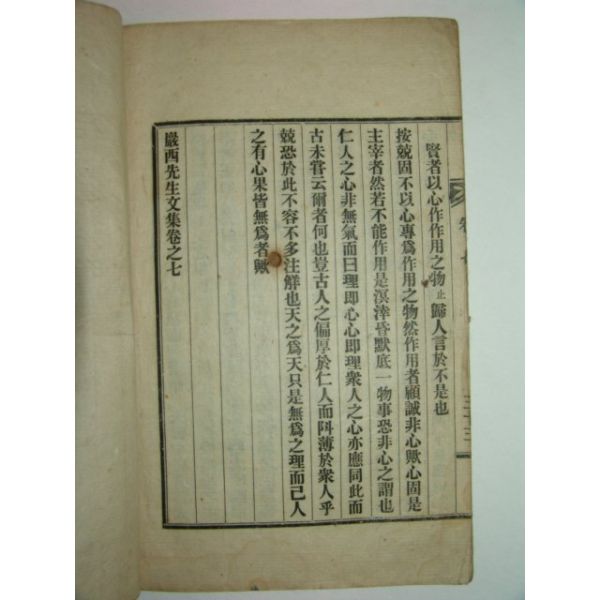 賢者以心作作用之物止歸人言於不是也
按兢固不以心專爲作用之物然作用者顧誠非心歟心固是
主宰者然若不能作用是溟涬昏默底一物事恐非心之謂也
仁人之心非無氣而曰理即心心即理衆人之心亦應同此而
古未嘗云爾者何也豈古人之偏厚於仁人而阧薄於衆人乎
兢恐於此不容不多注解也天之爲天只是無爲之理而已人
之有心果皆無爲者歟
巖西先生文集卷之七
卷七
三十三